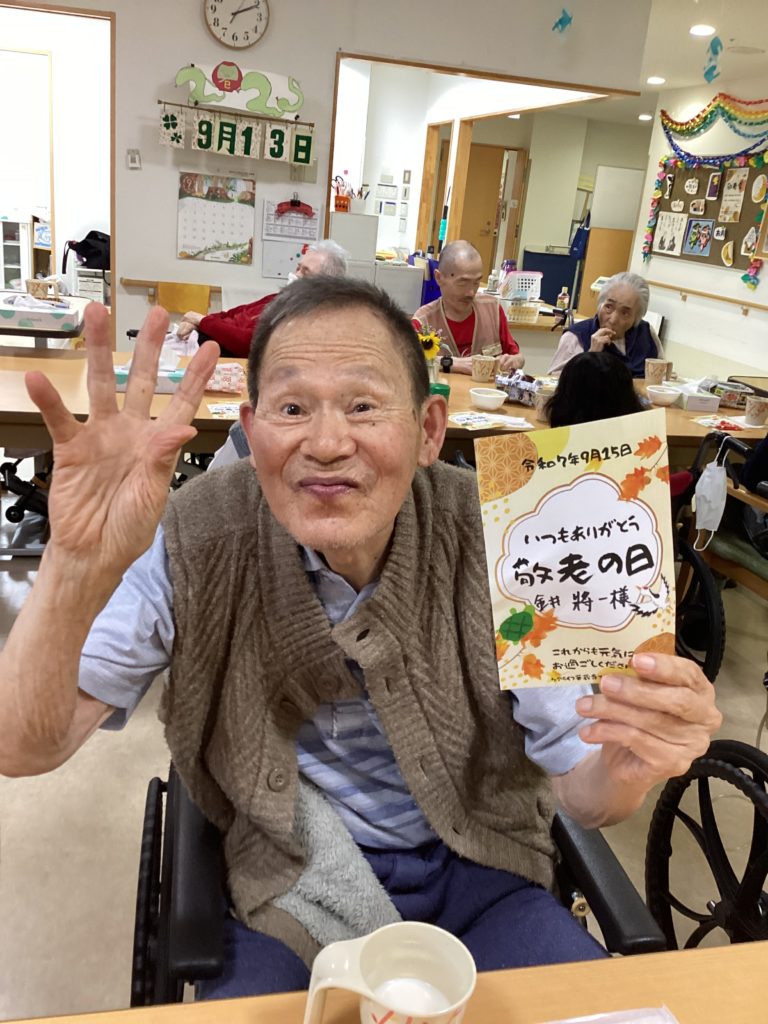 9月13日
令和7年9月15日
いつもありがとう
敬老の日
金井 將一様
これからも元気に
お過ごしくださ